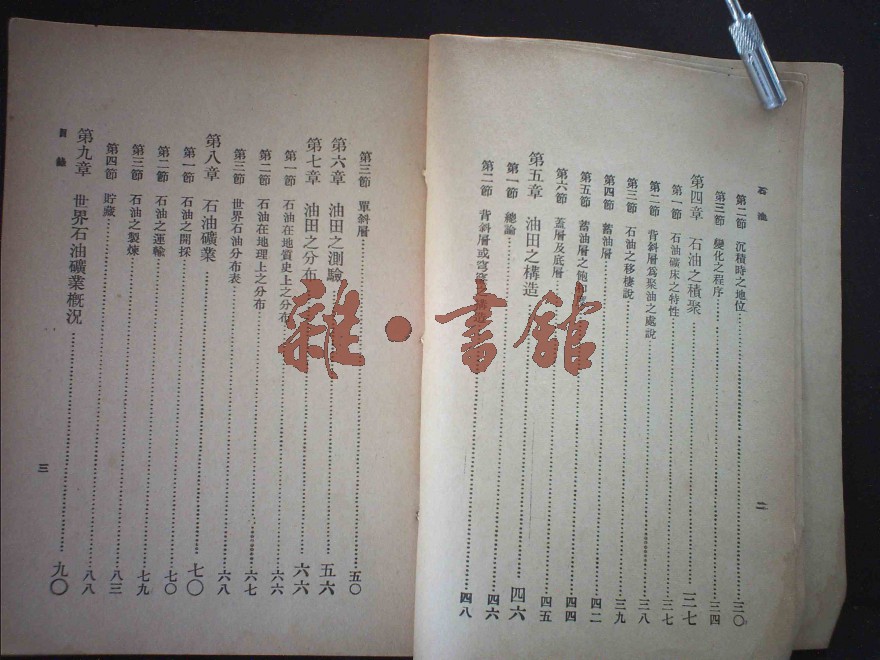 石油
第二節 沉積時之地位 三〇
第三節 變化之程序 三四
第四章 石油之積聚 三七
第一節 石油礦床之特性 三七
第二節 背斜層爲聚油之處說 三八
第三節 石油之移棲說 三九
第四節 蓄油層 四二
第五節 蓄油層之飽和 四四
第六節 蓋層及底層 四五
第五章 油田之構造 四六
第一節 總論 四六
第二節 背斜層或穹 四八
二
第三節 單斜層 五〇
第六章 油田之測驗 五六
第七章 油田之分布 六六
第一節 石油在地質史上之分布 六六
第二節 石油在地理上之分布 六七
第三節 世界石油分布表 六八
第八章 石油礦業 七〇
第一節 石油之開採 七〇
第二節 石油之運輸 七九
第三節 石油之製煉 八三
第四節 貯藏 八八
第九章 世界石油礦業概況 九〇
目錄
三
雜·書館